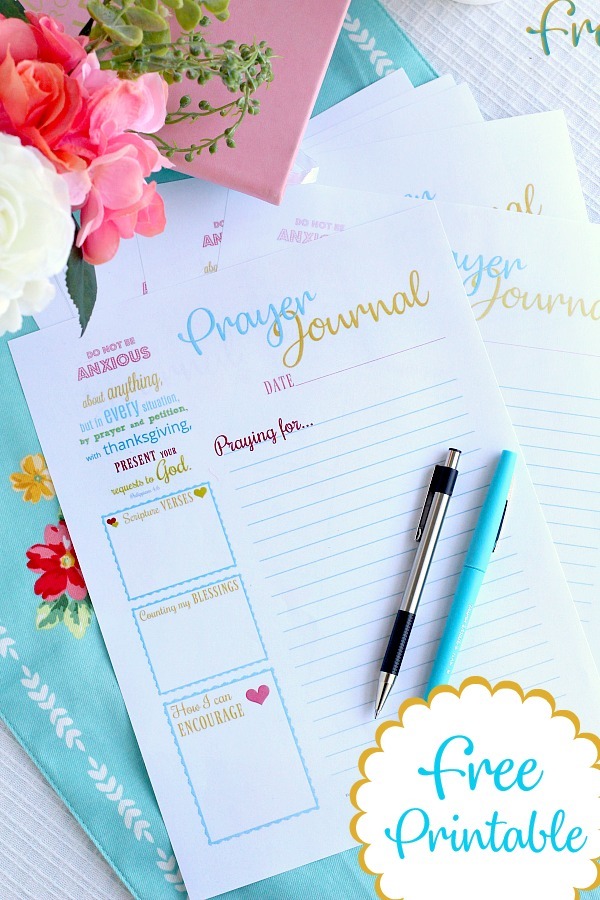 Free
DO NOT BE
ANXIOUS
abo
DO NOT BE
ANXIOUS
Journal
Prayer
Journal
Prayer
Journal
DO NOT BE
ANXIOUS
about anything,
but in every situation,
by prayer and petition,
with thanksgiving,
PRESENT YOUR
requests to God.
DATE
Praying for...
Scripture VERSES
Counting my BLESSINGS
How I can
ENCOURAGE
Free
Printable